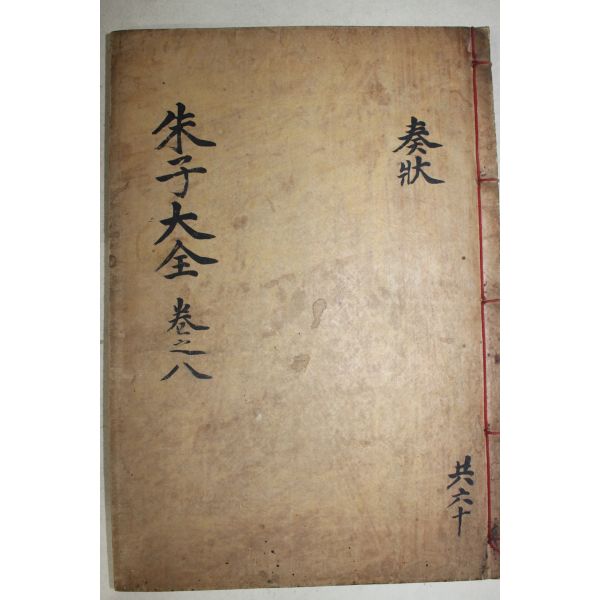 奏狀
朱子大全 卷之八
共六十